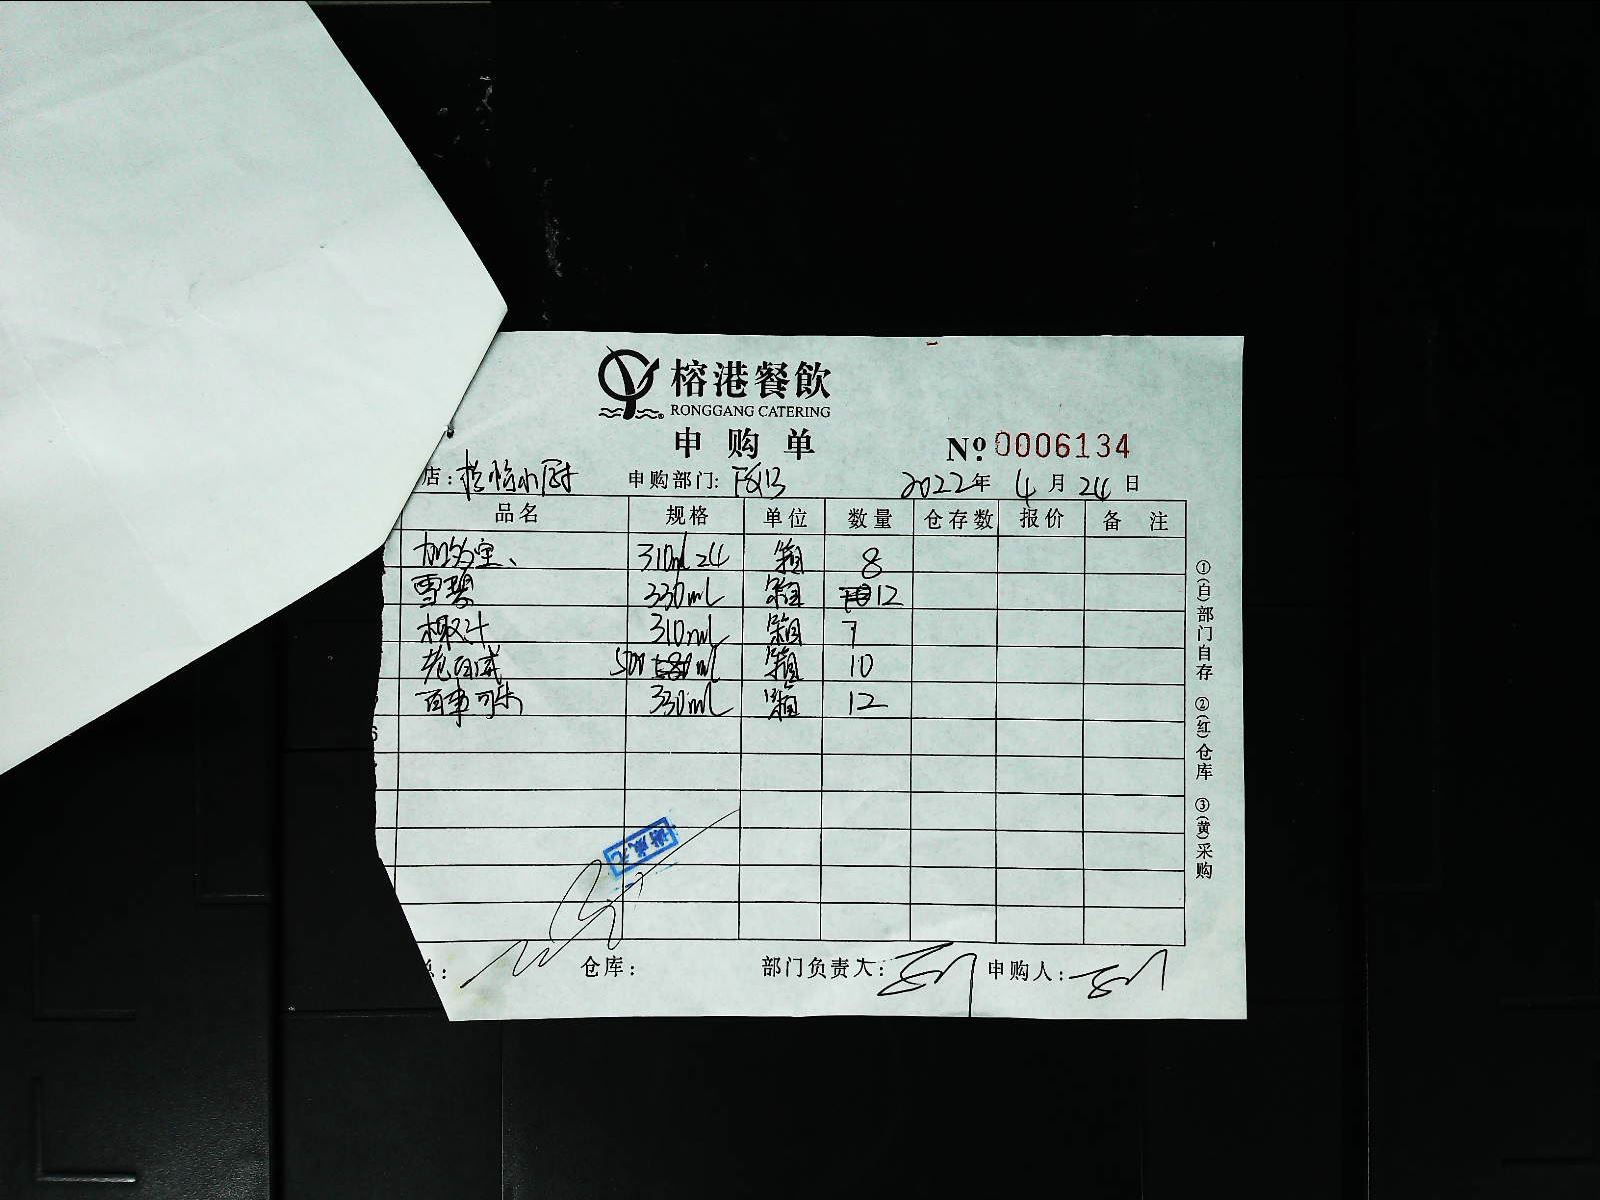 榕港餐飲
RONGGANG CATERING
申购单
№ 0006134
店: 小厨 申购部门: F&B 2022年 4月 24日
品名 规格 单位 数量 仓存数 报价 备注
加多宝、 310ml 24 箱 8
雪碧 330ml 箱 12
椰汁 310ml 箱 7
老百威 500 ml 箱 10
百事可乐 330ml 箱 12
6
仓库: 部门负责人: 申购人:
①(白)部门自存 ②(红)仓库 ③(黄)采购